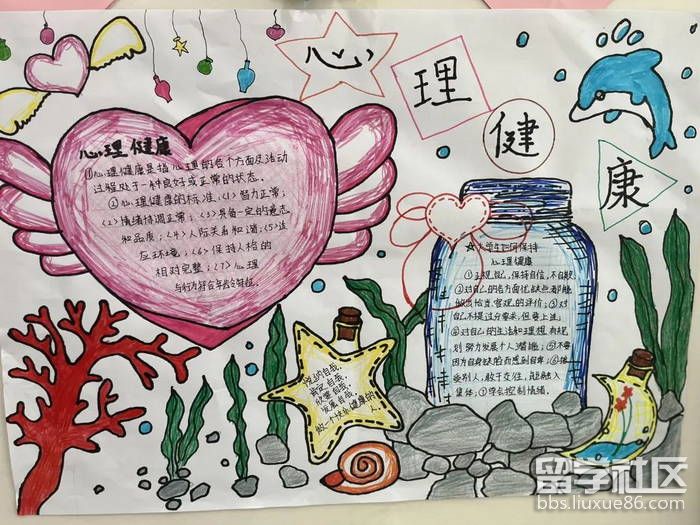 心理健康
心理健康
①心理健康是指心理的各个方面及活动
过程处于一种良好或正常的状态。
②心理健康的标准、(1)智力正常；
(2)情绪协调正常；(3)具备一定的意志
和品质；(4)人际关系和谐；(5)适
应环境；(6)保持人格的
相对完整；(7)心理
与行为符合年龄特征。
☆大学生如何保持
心理健康
①正视自己，保持自信，不自欺
②对自己的各方面优缺点都能
做出恰当、客观的评价；③对
自己不提过分要求，但要上进；
④对自己的生活和理想有规
划努力发展个人潜能；⑤不要
因为自身缺陷而感到自卑；⑥接
受别人，敢于交往，能融入
集体；⑦学会控制情绪。
悦纳自我，
肯定自我，
欣赏自我，
发展自我，
做个快乐健康的
人。
留学社区
bbs.liuxue86.com